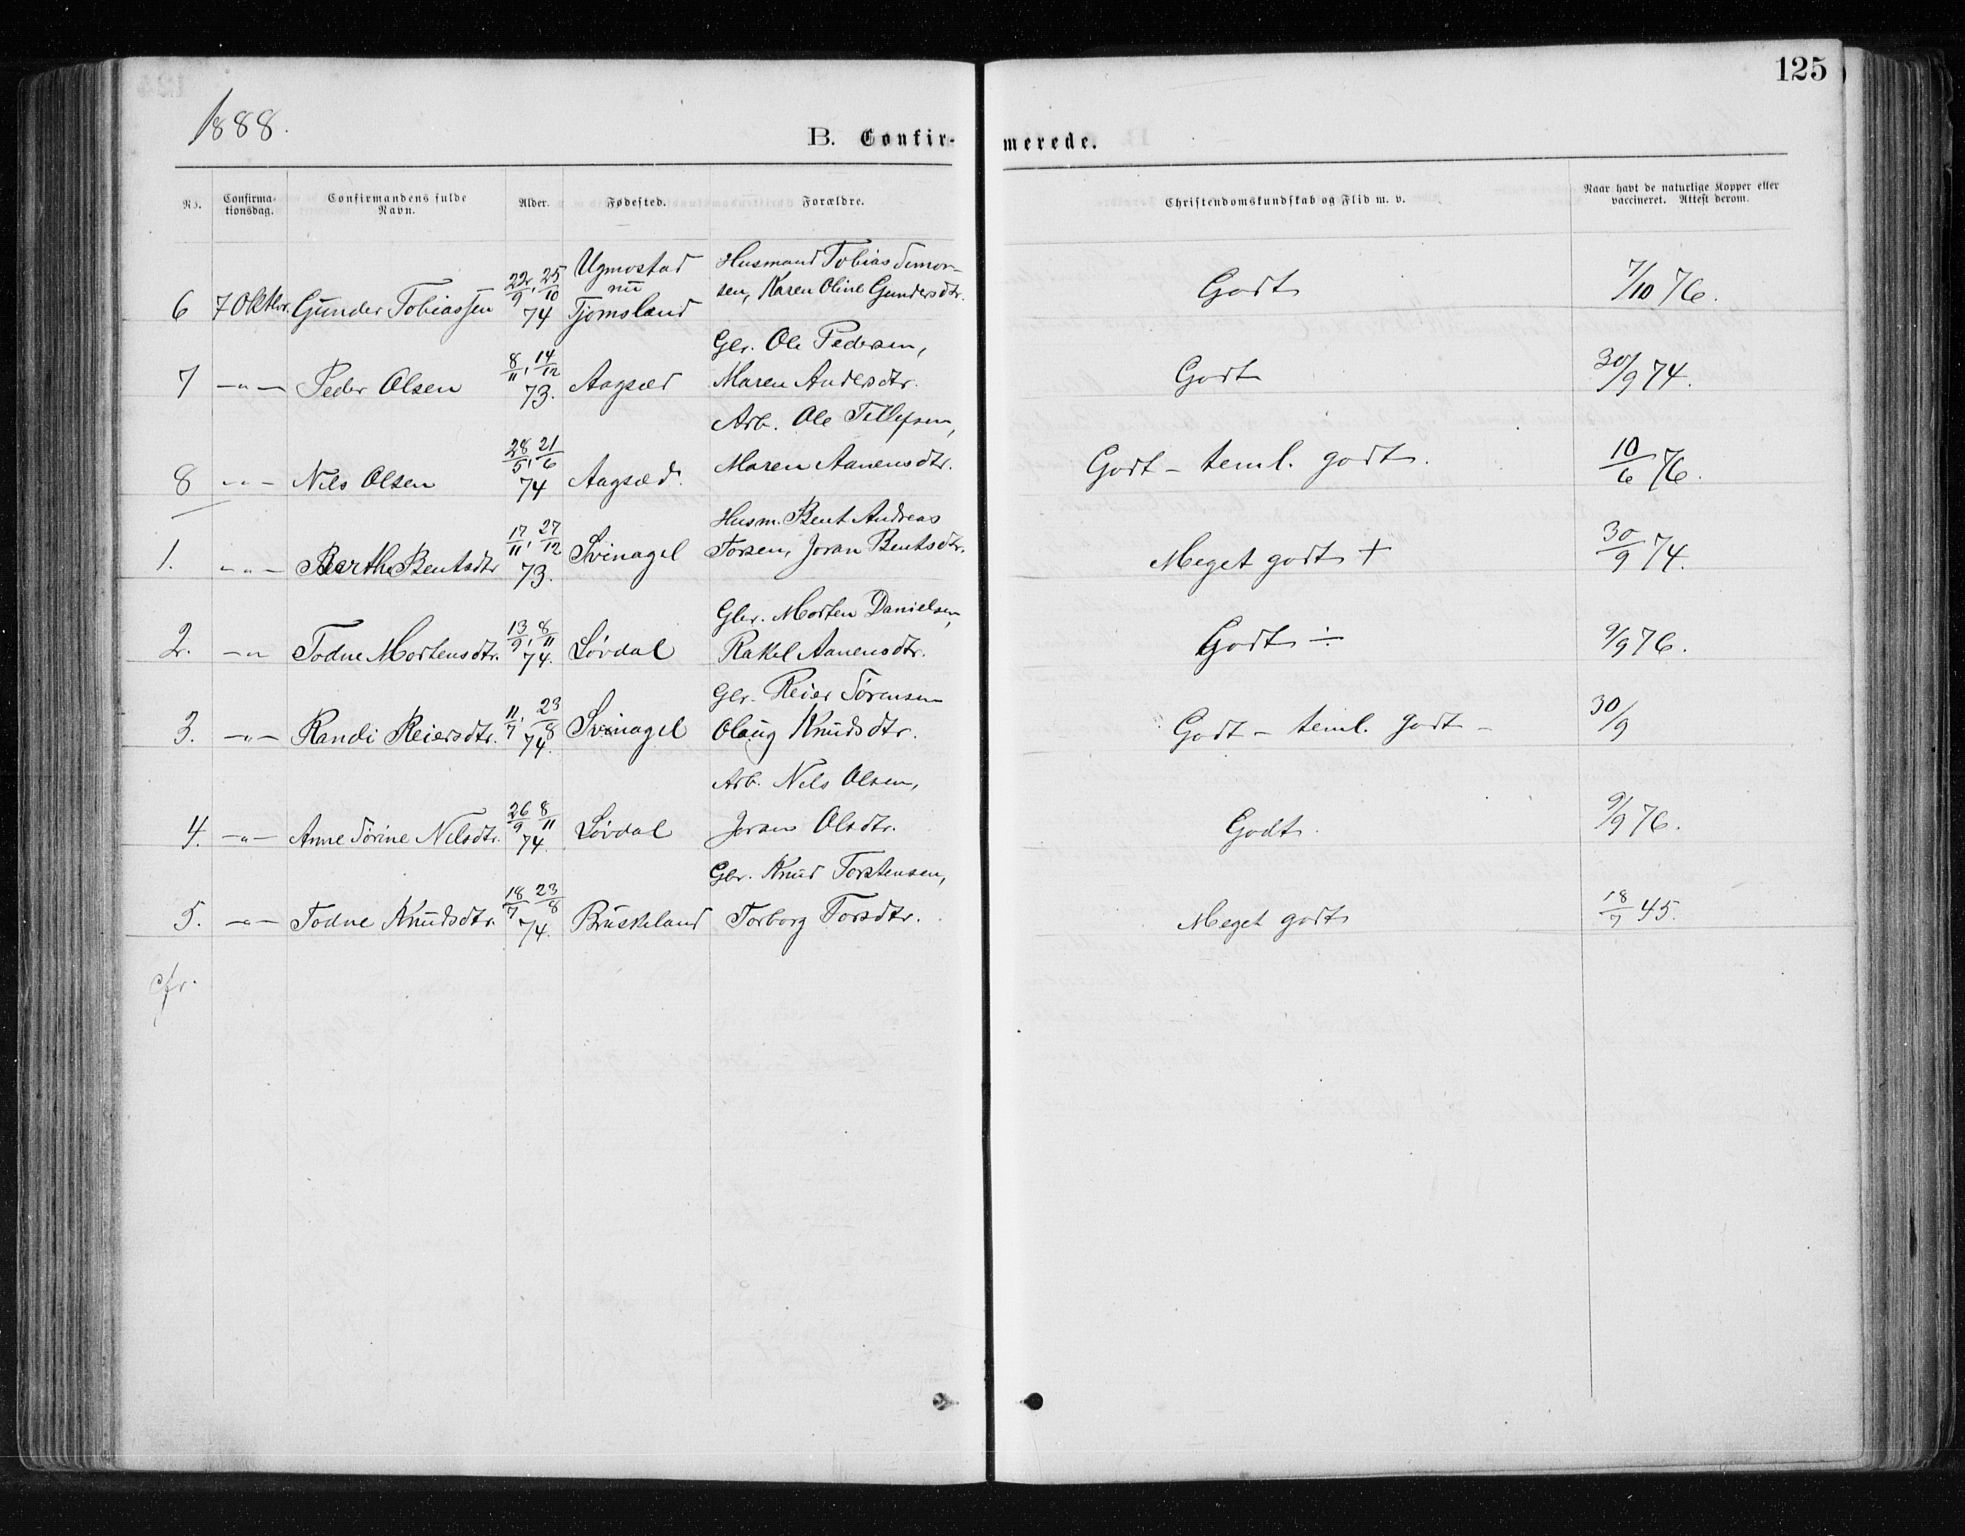 125
1888.
B. Confirmerede.
No.
Confirmationsdag.
Confirmandens fulde Navn.
Alder.
Fødested.
Forældre.
Christendomskundskab og Flid m. v.
Naar havt de naturlige Kopper eller vaccineret. Attest derom.
6 7 Oktbr. Gunder Tobiassen 22/9, 25/10 74 Ugmostad nu Tjomsland Husmand Tobias Simonsen, Karen Oline Gundersdtr. Godt 7/10 76.
7 -"- Peder Olsen 8/11, 14/12 73. Aagsæd Gbr. Ole Pedersen, Maren Andersdtr. Godt 30/9 74.
8 -"- Nils Olsen 28/5, 21/6 74 Aagsæd. Arb. Ole Tellefsen, Maren Aanensdtr. Godt - teml. godt. 10/6 76.
1. -"- Berthe Bentsdtr 17/11, 27/12 73. Svinagel Husm. Bent Andreas Torsen, Joran Bentsdtr. Meget godt + 30/9 74.
2. -"- Todne Mortensdtr. 13/9, 8/11 74. Løvdal Gbr. Morten Danielsen, Rakel Aanensdtr. Godt ÷ 9/9 76.
3. -"- Randi Reiersdtr. 11/7, 23/8 74. Svinagel Gbr. Reier Sørensen Olaug Knudsdtr. Godt - teml. godt - 30/9
4. -"- Anne Sørine Nilsdtr. 26/9 8/11 74. Løvdal Arb. Nels Olsen, Joran Olsdtr. Godt. 9/9 76.
5. -"- Todne Knudsdtr. 18/7 23/8 74. Bruskeland Gbr. Knud Torstensen, Torborg Torsdtr. Meget godt 18/7 45.
cfr.